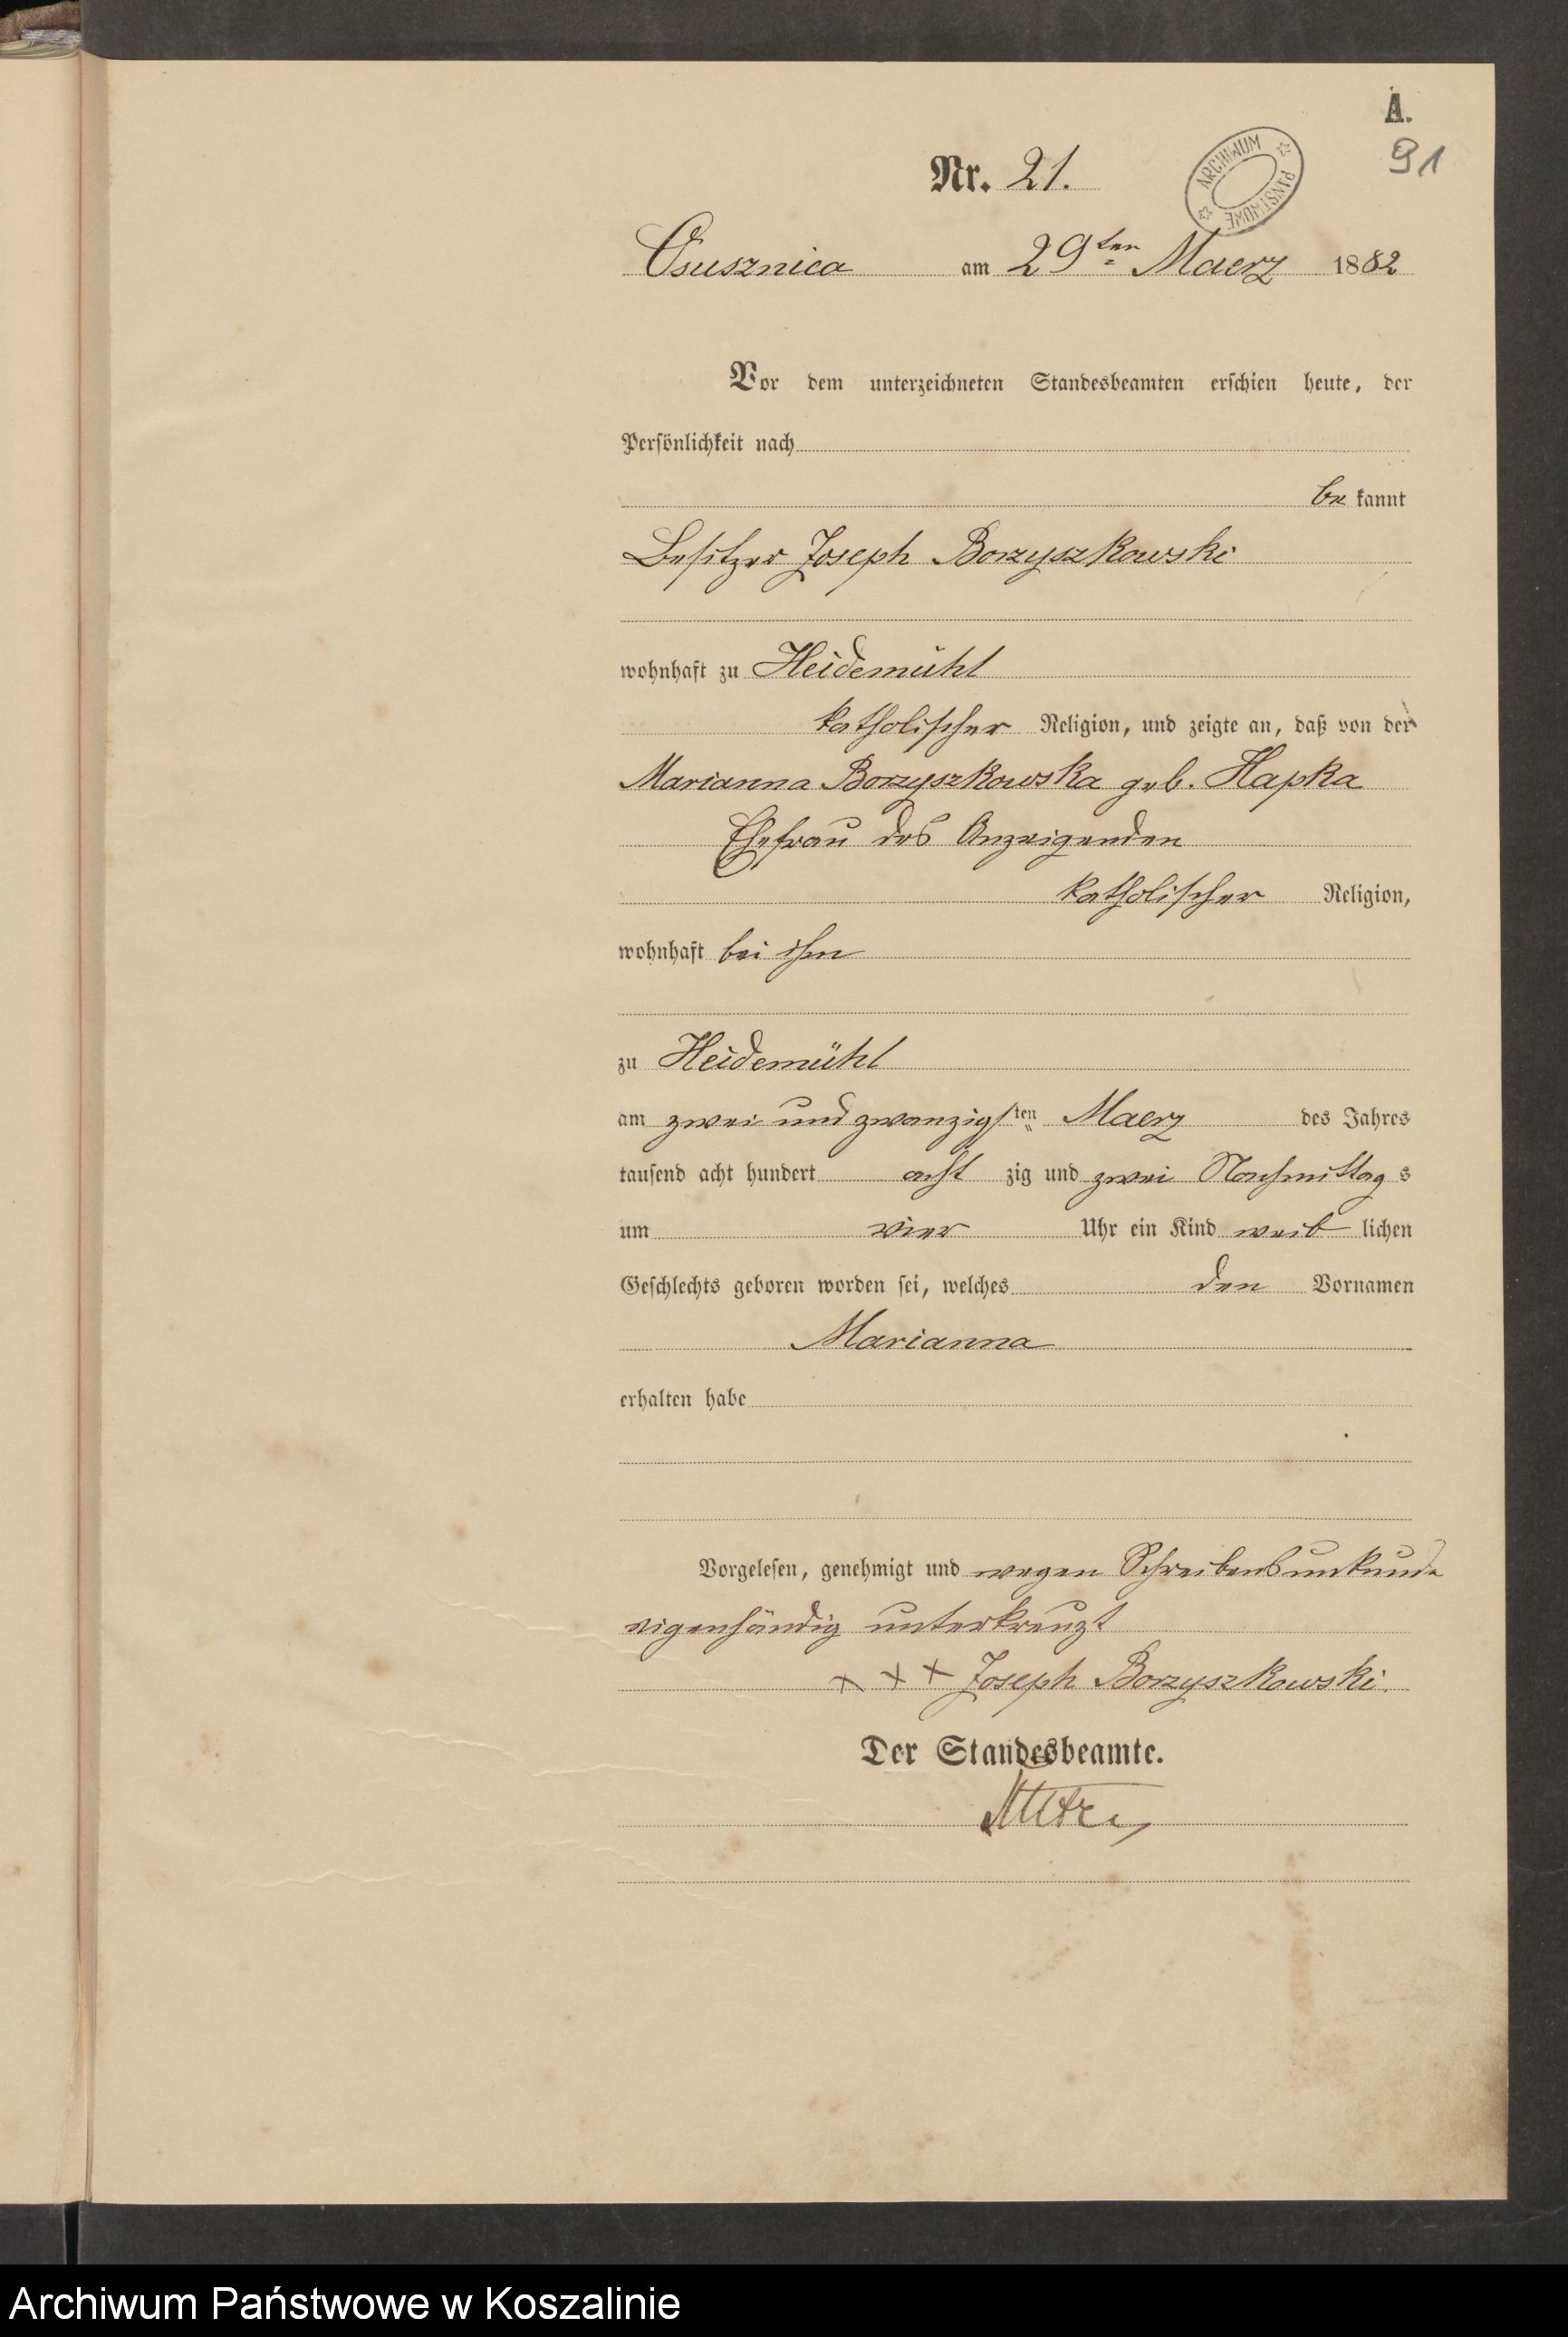 A.
91
Nr. 21.
ARCHIWUM PAŃSTWOWE
Osusznica am 29ten Maerz 1882
Vor dem unterzeichneten Standesbeamten erschien heute, der
Persönlichkeit nach
be kannt
Besitzer Joseph Borzyszkowski
wohnhaft zu Heidemühl
katholischer Religion, und zeigte an, daß von der
Marianna Borzyszkowska geb. Hapka
Ehefrau des Anzeigenden
katholischer Religion,
wohnhaft bei ihm
zu Heidemühl
am zwei und zwanzigsten Maerz des Jahres
tausend acht hundert acht zig und zwei Nachmittag s
um vier Uhr ein Kind weib lichen
Geschlechts geboren worden sei, welches den Vornamen
Marianna
erhalten habe
Vorgelesen, genehmigt und wegen Schreibensunkunde
eigenhändig unterkreuzt
+ + + Joseph Borzyszkowski.
Der Standesbeamte.
Archiwum Państwowe w Koszalinie